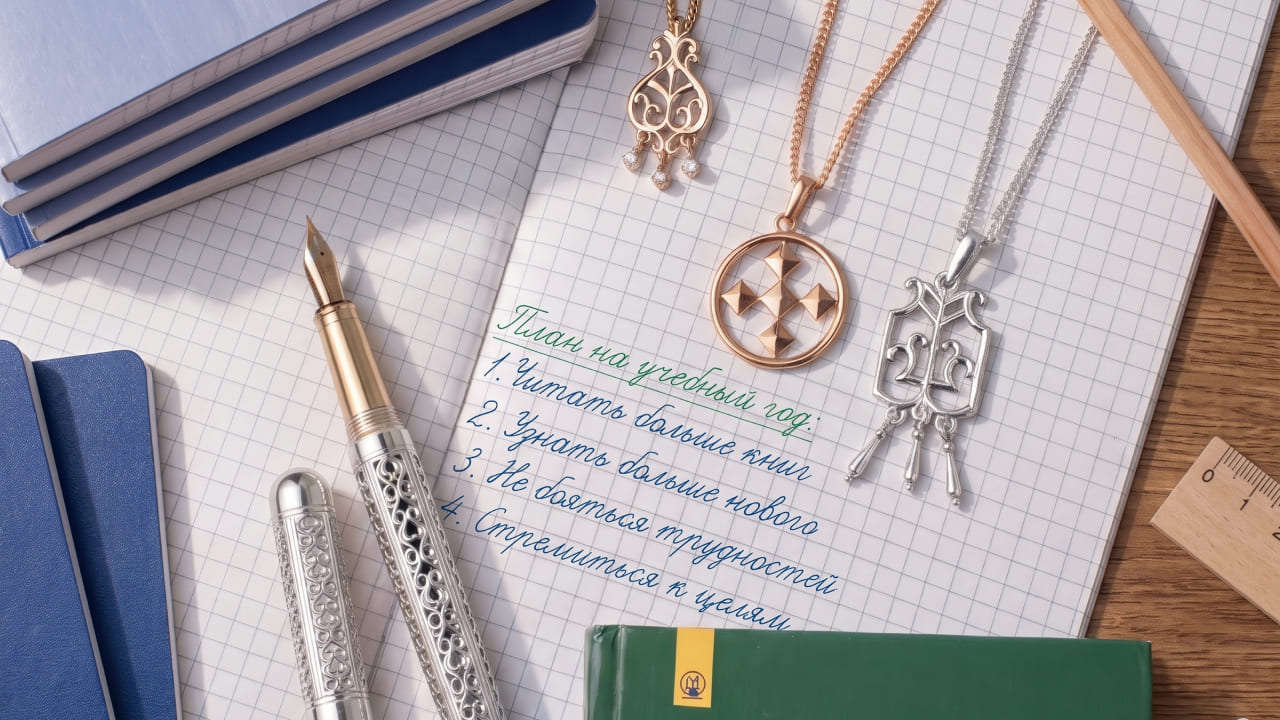 План на учебный год:
1. Читать больше книг
2. Узнать больше нового
3. Не бояться трудностей
4. Стремиться к целям
0 1 2